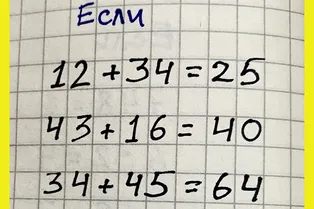 Если
12+34=25
43+16=40
34+45=64